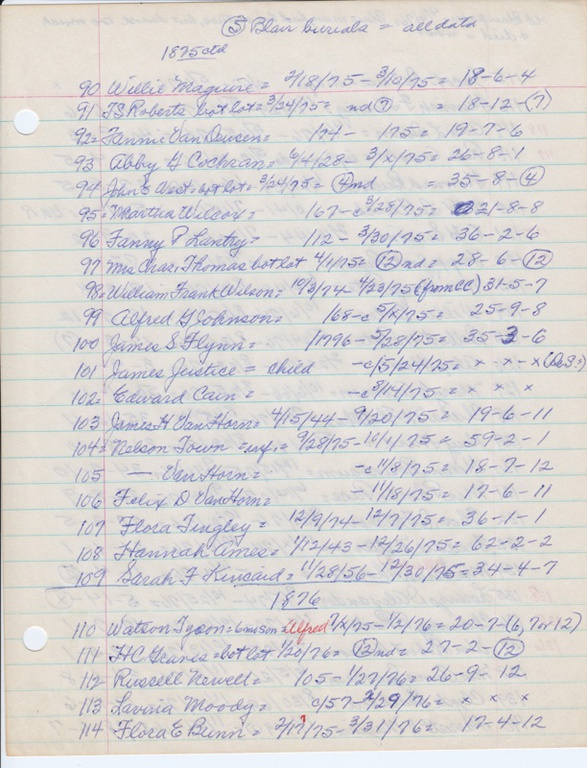 ⑤ Blair burials = all data
1875 ctd
90 Willie Maguire = 2/18/75 - 3/10/75 = 18-6-4
91 TS Roberts bot lot = 3/24/75 = nd ⑦ = 18-12-⑦
92 = Fannie Van Deusen = 174 - 175 = 19-7-6
93 Abby G Cochran = 6/4/28 - 3/x/75 = 26-8-1
94 John E West = bot lot = 3/24/75 = ④ nd = 35-8-④
95 = Martha Wilcox = 167 - c 3/28/75 = 21-8-8
96 Fanny P Lantry = 112 - 3/30/75 = 36-2-6
97 Mrs Chas. Thomas bot lot 4/1/75 = ⑫ nd = 28-6-⑫
98 = William Frank Wilson = 10/3/74 4/23/75 (from CC) 31-5-7
99 Alfred G Johnson = 168 - c 5/x/75 = 25-9-8
100 James S Flynn = 1796 - 5/28/75 = 35-3-6
101 James Justice = child - c/5/24/75 = x - x - x
102 = Edward Cain = - c 8/14/75 = x x x
103 James H Van Horn = 4/15/44 - 9/20/75 = 19-6-11
104 = Nelson Town = inf. = 9/28/75 - 10/11/75 = 59-2-1
105 — Van Horn = - c 11/8/75 = 18-7-12
106 Felix D Van Horn = - 11/18/75 = 17-6-11
107 Flora Tingley = 12/9/74 - 12/7/75 = 36-1-1
108 Hannah Ames = 1/12/43 - 12/26/75 = 62-2-2
109 Sarah F Kincaid = 11/28/56 - 12/30/75 = 34-4-7
1876
110 Watson Tyson = 6 mo son = Alfred 7/x/75 - 1/2/76 = 20-7-(6, 7 or 12)
111 HC Graves = bot lot 1/20/76 = ⑫ nd = 27-2-⑫
112 Russell Newell = 105 - 1/27/76 = 26-9-12
113 Lavina Moody = c/57 - 2/29/76 = x x x
114 Flora E Bunn = 2/17/75 - 3/31/76 = 17-4-12